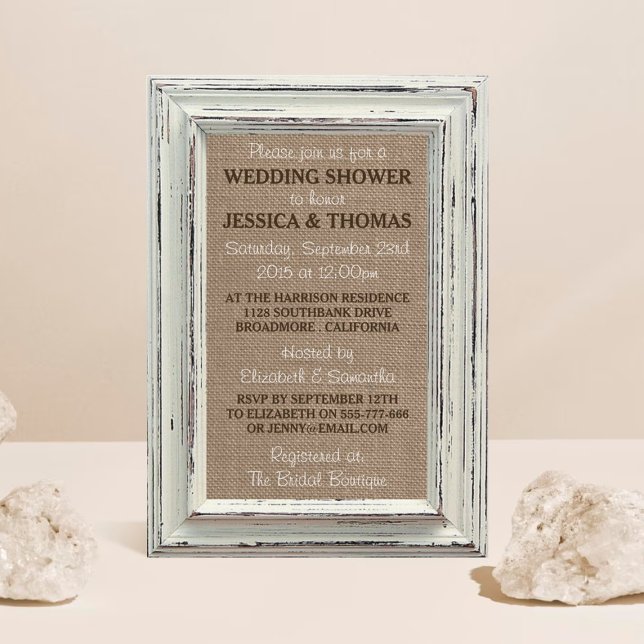 Please join us for a
WEDDING SHOWER
to honor
JESSICA & THOMAS
Saturday, September 23rd
2015 at 12:00pm
AT THE HARRISON RESIDENCE
1128 SOUTHBANK DRIVE
BROADMORE . CALIFORNIA
Hosted by
Elizabeth & Samantha
RSVP BY SEPTEMBER 12TH
TO ELIZABETH ON 555-777-666
OR JENNY@EMAIL.COM
Registered at:
The Bridal Boutique